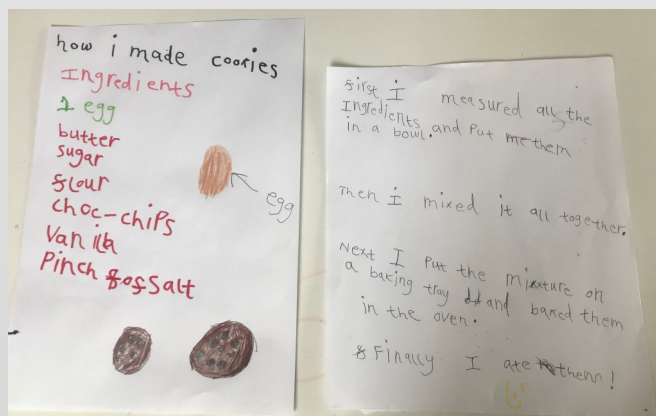 how i made cookies
Ingredients
1 egg
butter
sugar
flour
choc-chips
Vanilla
Pinch of Salt
egg
first I measured all the
Ingredients and Put them
in a bowl.
Then I mixed it all together.
Next I Put the mixture on
a baking tray and baked them
in the oven.
Finally I ate them!